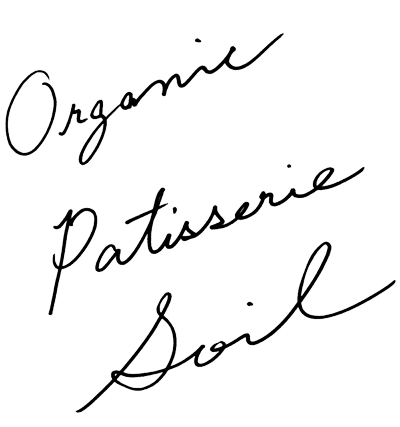 Organic
Patisserie
Soil